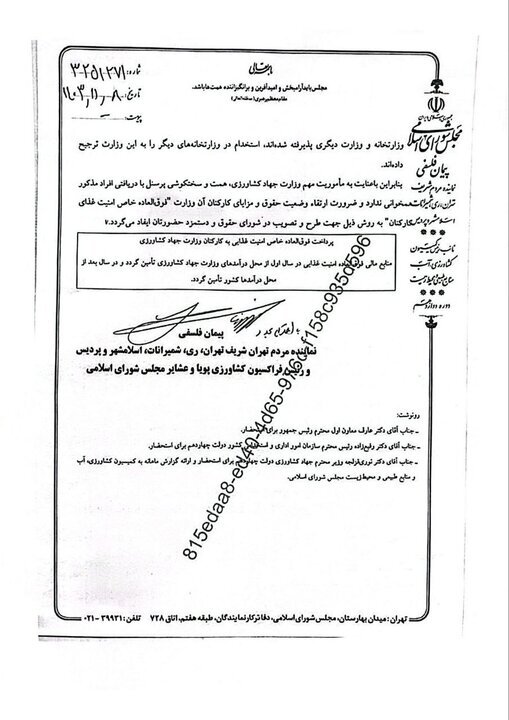 باسمه تعالی
مجلس باید آرامبخش و امیدآفرین و برانگیزاننده همت‌ها باشد.
مقام معظم رهبری (مدظله العالی)
شماره: ۳-۲۵۱۲۷۱
تاریخ: ۱۴۰۳,۱۱,۰۸
پیوست: -
جمهوری اسلامی ایران
مجلس شورای اسلامی
پیمان فلسفی
نماینده مردم شریف
تهران، ری، شمیرانات
اسلامشهر و پردیس
نائب رئیس کمیسیون
کشاورزی، آب
منابع طبیعی و محیط زیست
دوره دوازدهم
وزارتخانه و وزارت دیگری پذیرفته شده‌اند، استخدام در وزارتخانه‌های دیگر را به این وزارت ترجیح
داده‌اند.
بنابراین باعنایت به مأموریت مهم وزارت جهاد کشاورزی، همت و سختکوشی پرسنل با دریافتی افراد مذکور
همخوانی ندارد و ضرورت ارتقاء وضعیت حقوق و مزایای کارکنان آن وزارت "فوق‌العاده خاص امنیت غذای
کارکنان" به روش ذیل جهت طرح و تصویب در شورای حقوق و دستمزد حضورتان ایفاد می‌گردد.
پرداخت فوق‌العاده خاص امنیت غذایی به کارکنان وزارت جهاد کشاورزی
منابع مالی فوق‌العاده امنیت غذایی در سال اول از محل درآمدهای وزارت جهاد کشاورزی تأمین گردد و در سال بعد از
محل درآمدها کشور تأمین گردد.
پیمان فلسفی
نماینده مردم تهران شریف تهران، ری، شمیرانات، اسلامشهر و پردیس
و رئیس فراکسیون کشاورزی پویا و عشایر مجلس شورای اسلامی
رونوشت:
ـ جناب آقای دکتر عارف معاون اول محترم رئیس جمهور برای استحضار.
ـ جناب آقای دکتر رفیع‌زاده رئیس محترم سازمان امور اداری و استخدامی کشور دولت چهاردهم برای استحضار.
ـ جناب آقای دکتر نوری‌قزلجه وزیر محترم جهاد کشاورزی دولت چهاردهم برای استحضار و ارائه گزارش ماهانه به کمیسیون کشاورزی، آب
و منابع طبیعی و محیط زیست مجلس شورای اسلامی.
تهران: میدان بهارستان، مجلس شورای اسلامی، دفاتر کار نمایندگان، طبقه هفتم، اتاق ۷۲۸ تلفن: ۳۹۹۳۱-۰۲۱